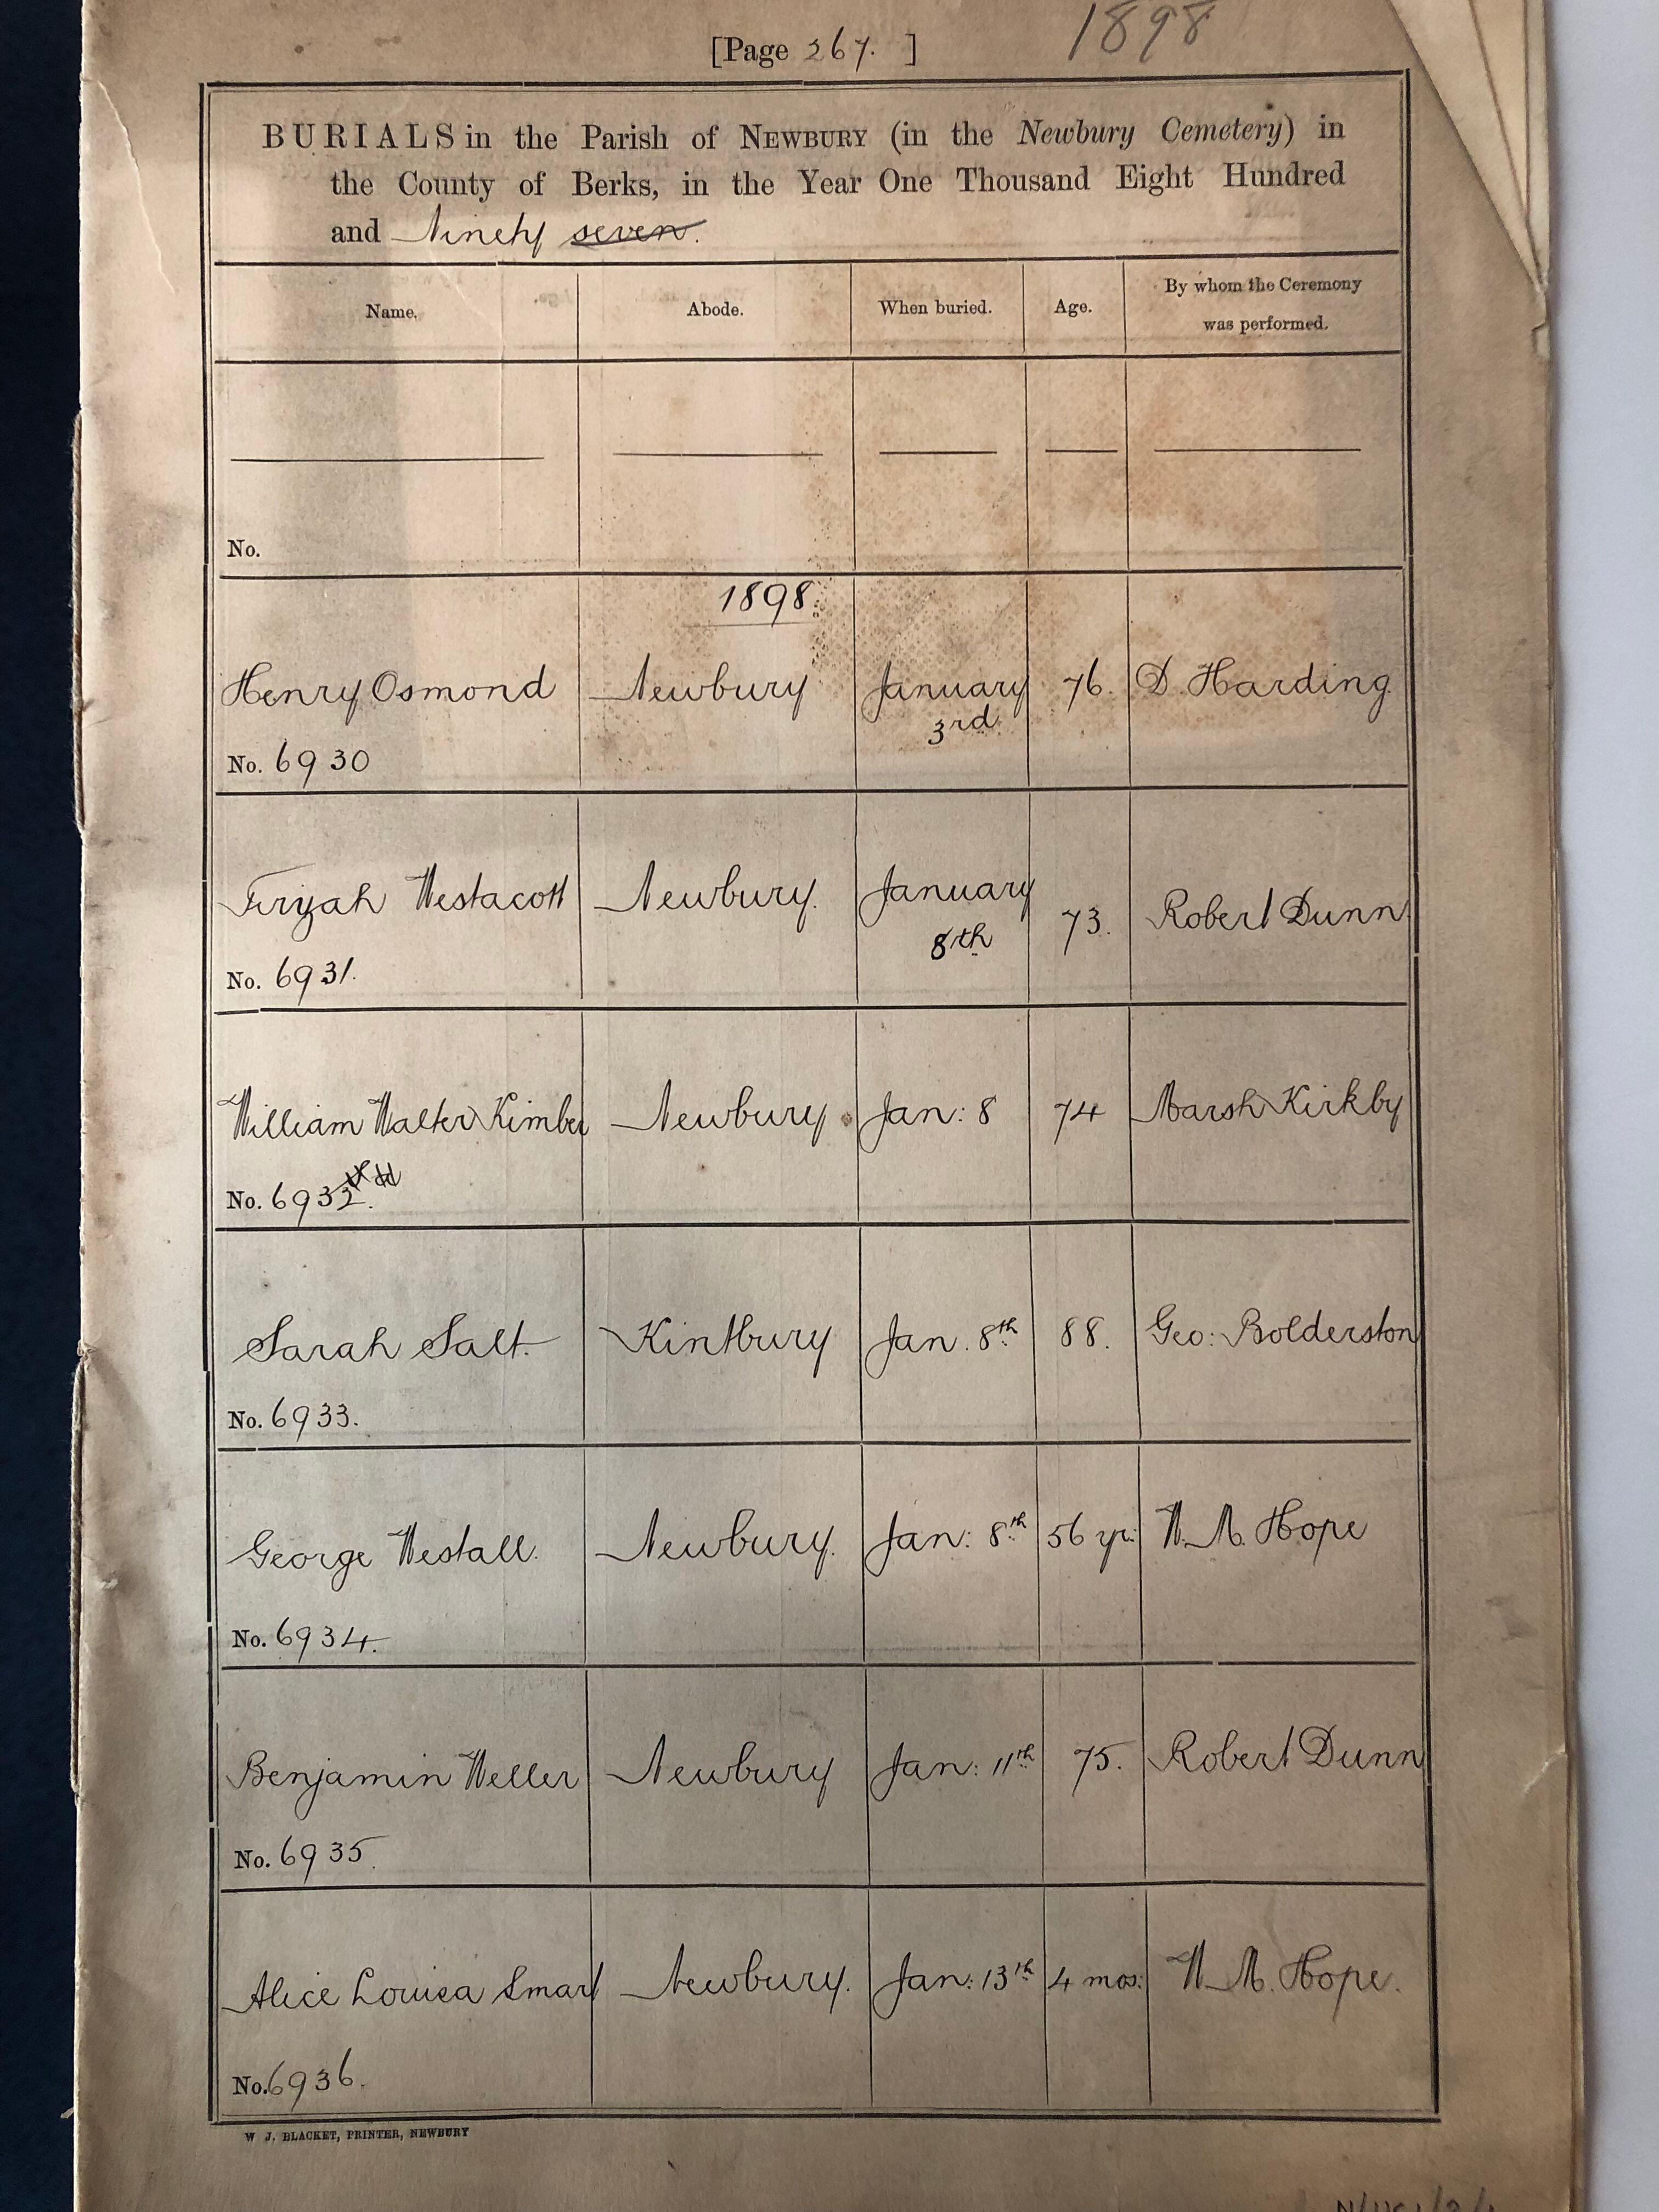 [Page 267. ]
1898
BURIALS in the Parish of NEWBURY (in the Newbury Cemetery) in
the County of Berks, in the Year One Thousand Eight Hundred
and Ninety seven.
Name. Abode. When buried. Age. By whom the Ceremony
was performed.
No.
1898.
Henry Osmond Newbury January 76. D. Harding
3rd
No. 6930
Westacott Newbury. January 73. Robert Dunn
8th
No. 6931.
William Walter Kimber Newbury. Jan: 8 74 Marsh Kirkby
No. 6932.
Sarah Salt. Kintbury Jan. 8th 88. Geo: Bolderston
No. 6933.
George Westall. Newbury. Jan: 8th 56 yr: W. M. Hope
No. 6934.
Benjamin Weller Newbury Jan: 11th 75. Robert Dunn
No. 6935.
Alice Louisa Smart Newbury. Jan: 13th 4 mos: W. M. Hope.
No. 6936.
W J. BLACKET, PRINTER, NEWBURY